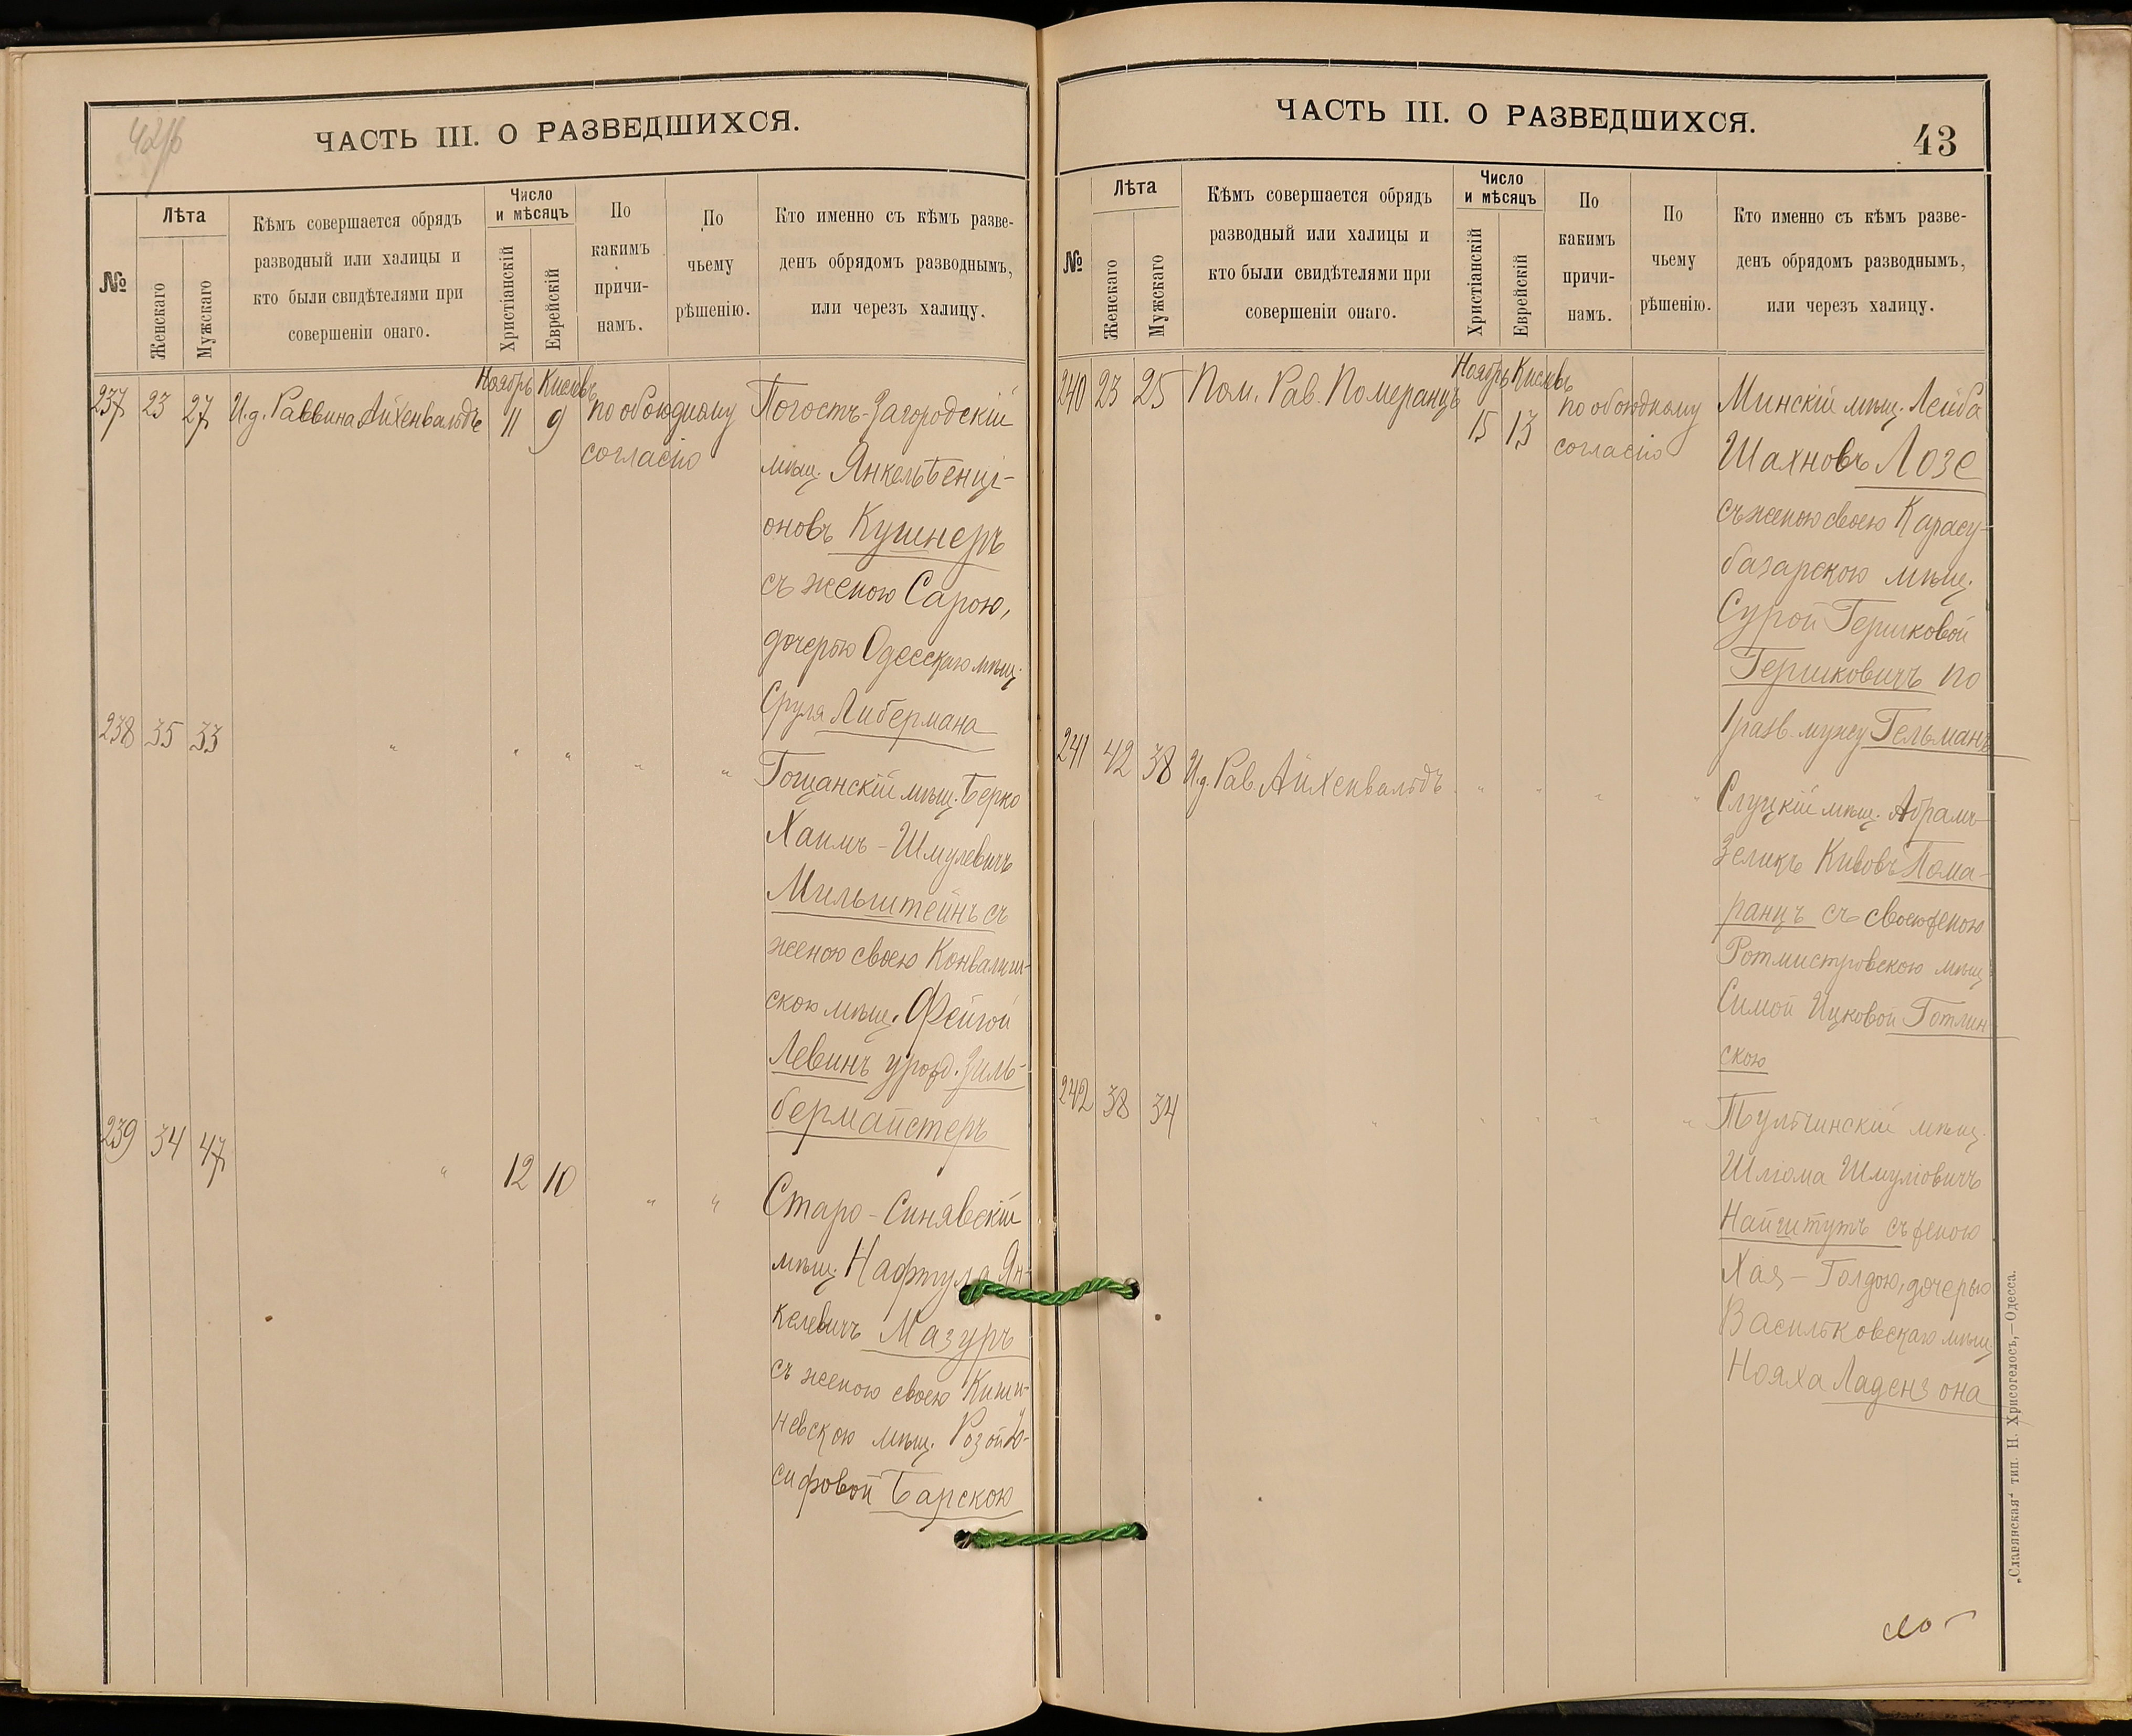 ЧАСТЬ III. О РАЗВЕДШИХСЯ.
№
Лѣта
Женскаго
Мужскаго
Кѣмъ совершается обрядъ
разводный или халицы и
кто были свидѣтелями при
совершеніи онаго.
Число
и мѣсяцъ
Христіанскій
Еврейскій
По
какимъ
причи-
намъ.
По
чьему
рѣшенію.
Кто именно съ кѣмъ разве-
денъ обрядомъ разводнымъ,
или черезъ халицу.
237 23 27 И.д. Раввина Айхенвальдъ
Ноябрь Кислевъ
11 9
по обоюдному
согласію
Погостъ-Загородскій
мѣщ. Янкель Бенці-
оновъ Кушнеръ
съ женою Сарою,
дочерью Одесскаго мѣщ.
Сруля Либермана
238 35 33 " " " " "
Гощанскій мѣщ. Берко
Хаимъ-Шмулевичъ
Мильштейнъ съ
женою своею
скою мѣщ. Фейгой
Левинъ урожд. Зиль-
бермайстеръ
239 34 47 " 12 10 " "
Старо-Синявскій
мѣщ. Нафтула Ян-
келевичъ Мазуръ
съ женою своею Киши-
невскою мѣщ. Розой Іо-
сифовой Барскою
ЧАСТЬ III. О РАЗВЕДШИХСЯ.
43
№
Лѣта
Женскаго
Мужскаго
Кѣмъ совершается обрядъ
разводный или халицы и
кто были свидѣтелями при
совершеніи онаго.
Число
и мѣсяцъ
Христіанскій
Еврейскій
По
какимъ
причи-
намъ.
По
чьему
рѣшенію.
Кто именно съ кѣмъ разве-
денъ обрядомъ разводнымъ,
или черезъ халицу.
240 23 25 Пом. Рав. Померанцъ
Ноябрь Кислевъ
15 13
по обоюдному
согласію
Минскій мѣщ. Лейба
Шахновъ Лозе
съ женою своею Карасу-
базарскою мѣщ.
Сурой Гершковой
Гершковичъ по
1 разв. мужу Гельманъ
241 42 38 И.д. Рав. Айхенвальдъ " " " "
Слуцкій мѣщ. Абрамъ
Зеликъ Кивовъ Пома-
ранцъ съ своею женою
Ротмистровскою мѣщ.
Симой Ицковой Готлин
скою
242 38 34 " " " " "
Тульчинскій мѣщ.
Шліома Шмуліовичъ
Найштутъ съ женою
Хая-Голдою, дочерью
Васильковскаго мѣщ.
Нояха Ладензона
„Славянская“ тип. Н. Хрисогелосъ,—Одесса.